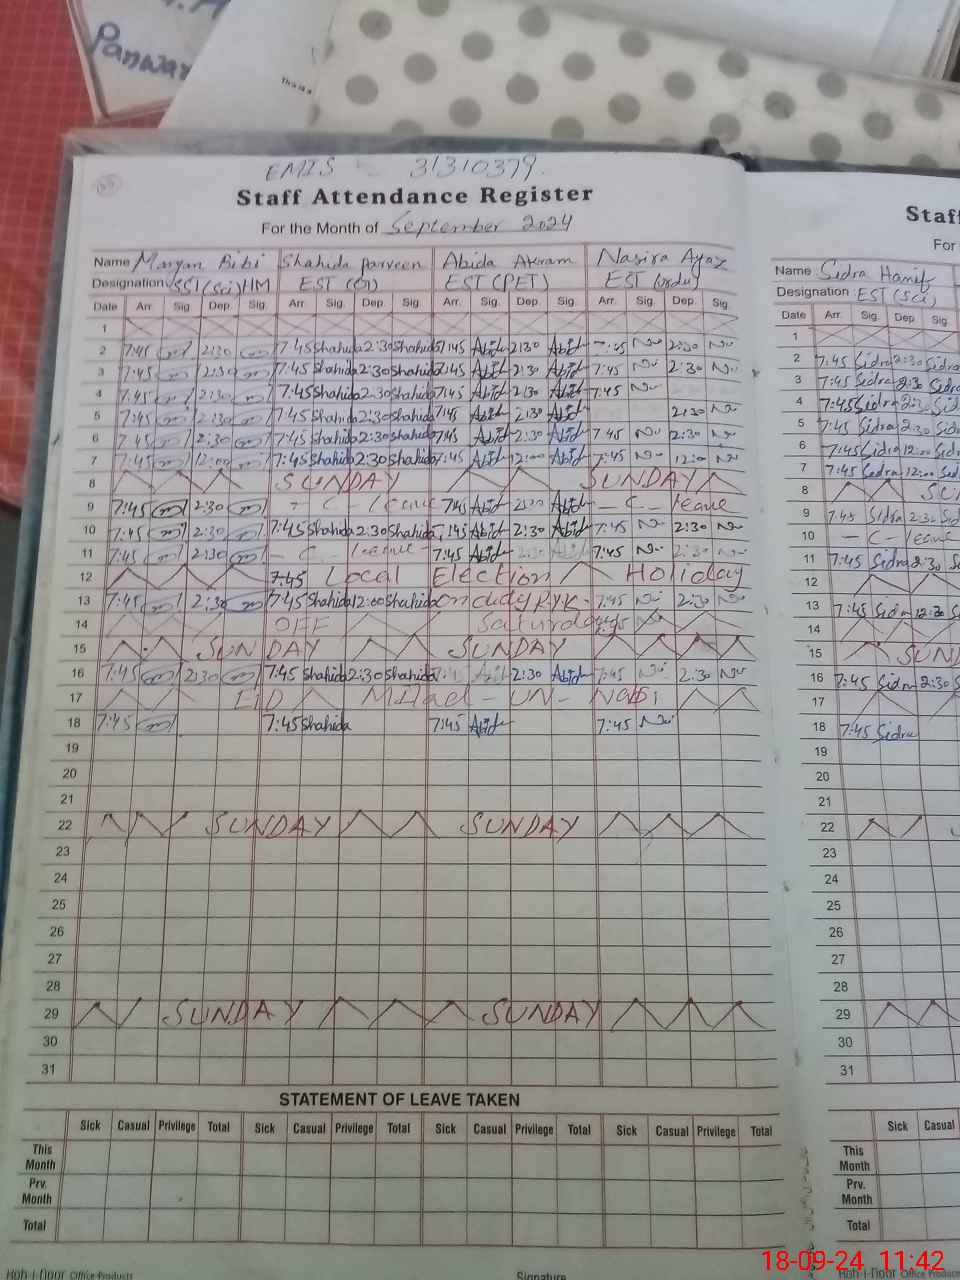 Panwar
This is a
EMIS 31310379.
Staff Attendance Register
For the Month of September 2024
Name Maryan Bibi Shahida parveen Abida Akram Nasira Ayaz
Designation SSI (Sci) HM EST (OT) EST (PET) EST (urdu)
Date Arr. Sig. Dep. Sig. Arr. Sig. Dep. Sig. Arr. Sig. Dep. Sig. Arr. Sig. Dep. Sig.
1
2 7:45 2:30 7:45 Shahida 2:30 Shahida 7:45 Abid 2:30 Abid 7:45 2:30
3 7:45 2:30 7:45 Shahida 2:30 Shahida 7:45 Abid 2:30 Abid 7:45 2:30
4 7:45 2:30 7:45 Shahida 2:30 Shahida 7:45 Abid 2:30 Abid 7:45
5 7:45 2:30 7:45 Shahida 2:30 Shahida 7:45 Abid 2:30 Abid 2:30
6 7:45 2:30 7:45 Shahida 2:30 Shahida 7:45 Abid 2:30 Abid 7:45 2:30
7 7:45 12:00 7:45 Shahida 2:30 Shahida 7:45 Abid 12:00 Abid 7:45 12:00
8 SUNDAY SUNDAY
9 7:45 2:30 - C - leave 7:45 Abid 2:30 Abid - C - leave
10 7:45 2:30 7:45 Shahida 2:30 Shahida 7:45 Abid 2:30 Abid 7:45 2:30
11 7:45 2:30 - C - leave - 7:45 Abid 2:30 Abid 7:45 2:30
12 7:45 Local Election Holiday
13 7:45 2:30 7:45 Shahida 12:00 Shahida on duty R.Y.K - 7:45 2:30
14 OFF Saturday
15 SUNDAY SUNDAY
16 7:45 2:30 7:45 Shahida 2:30 Shahida 7:45 Abid 2:30 Abid 7:45 2:30
17 EID Millad - UN - Nabi
18 7:45 7:45 Shahida 7:45 Abid 7:45
19
20
21
22 SUNDAY SUNDAY
23
24
25
26
27
28
29 SUNDAY SUNDAY
30
31
STATEMENT OF LEAVE TAKEN
Sick Casual Privilege Total Sick Casual Privilege Total Sick Casual Privilege Total Sick Casual Privilege Total
This Month
Prv. Month
Total
Koh-i-Noor Office Products Signature
Staf
For
Name Sidra Hanif
Designation EST (Sci)
Date Arr. Sig. Dep. Sig.
1
2 7:45 Sidra 2:30 Sidra
3 7:45 Sidra 2:30 Sidra
4 7:45 Sidra 2:30 Sid
5 7:45 Sidra 2:30 Sid
6 7:45 Sidra 12:00 Sid
7 7:45 Sidra 12:00 Sid
8 SU
9 7:45 Sidra 2:30 Sid
10 - C - leave
11 7:45 Sidra 2:30 Sid
12
13 7:45 Sidra 12:30 Si
14
15 SUND
16 7:45 Sidra 2:30 S
17
18 7:45 Sidra
19
20
21
22
23
24
25
26
27
28
29
30
31
Sick Casual
This Month
Prv. Month
Total
Koh-i-Noor Office Products
18-09-24 11:42